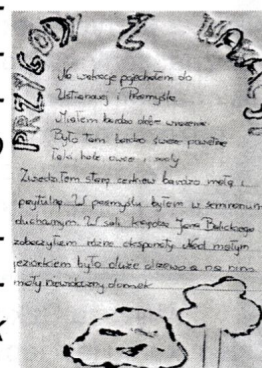 PRZYGODY Z WAKACJI
Na wakacje pojechałem do
Ustianowej i Przemyśla.
Miałem bardzo dobre wrażenie
Było tam bardzo świeże powietrze
Łąki, hale owce i woły
Zwiedzałem starą cerkiew bardzo małą i
przytulną. W przemyślu byłem w seminarium
duchownym. W sali księdza Jana Balickiego
zobaczyłem różne eksponaty. Nad małym
jeziorkiem było duże drzewo a na nim
mały niewidoczny domek